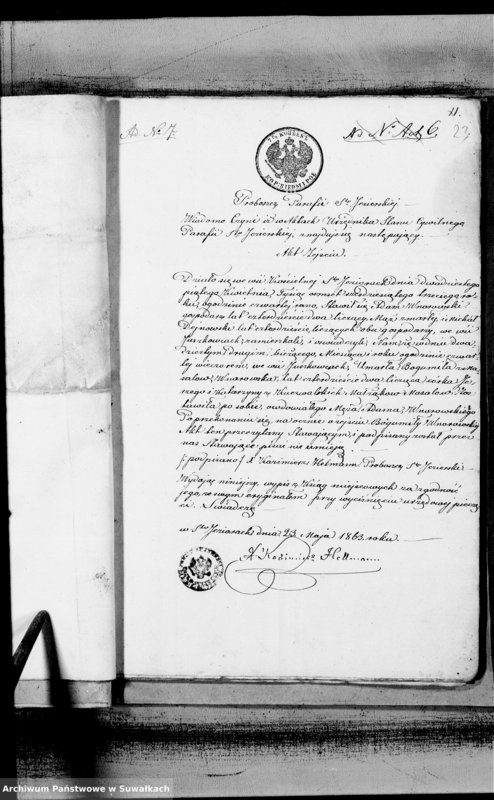 11.
Ad N° 7.
Ad N° Akt. 6.
23
7½ KOPIEJEK
KOP. SIEDM I PÓŁ
Proboszcz Parafii Sto Jezierskiej
Wiadomo Czyni iż w Aktach Urzędnika Stanu Cywilnego
Parafii Sto Jezierskiej, znajduje się następujący
Akt Zejścia.
Działo się we wsi Kościelnej Sto Jeziorach dnia dwudziestego
piątego Kwietnia Tysiąc ośmset sześćdziesiątego trzeciego ro-
ku, o godzinie czwartej rano, Stawił się Adam Wnorowski
gospodarz lat czterdzieście dwa liczący Mąż zmarłej, i Michał
Dejnowski lat czterdzieście, liczący obu gospodarzy, we wsi
Jurkowiczach zamieszkali, i oświadczyli Nam, że w dniu dwu-
dziestym drugim bieżącego, Miesiąca i roku o godzinie czwar-
tej wieczorem, we wsi Jurkowiczach, Umarła Bogumiła z
Wnorowska, lat czterdzieście dwa licząca córka Je-
rzego i Katarzyny z Małżonków
stawiła po sobie, owdowiałego Męża Adama, Wnorowskiego
Po przekonaniu się, na ocznie o zejściu Bogumiły Wnorowskiej
Akt ten przeczytany Stawającym i podpisany został przez
nas Stawające pisać nie umieją.
/podpisano/ X Kazimierz Hofmann Proboszcz Sto Jezierski
Wydając niniejszy, wypis z Ksiąg miejscowych za zgodność
jego, ze swym oryginałem przy wyciśnięciu urzędowej pieczę-
ci. Świadczę
w Sto Jeziorach dnia 23 Maja 1863 roku.
X Kazimierz Hofmann
Archiwum Państwowe w Suwałkach